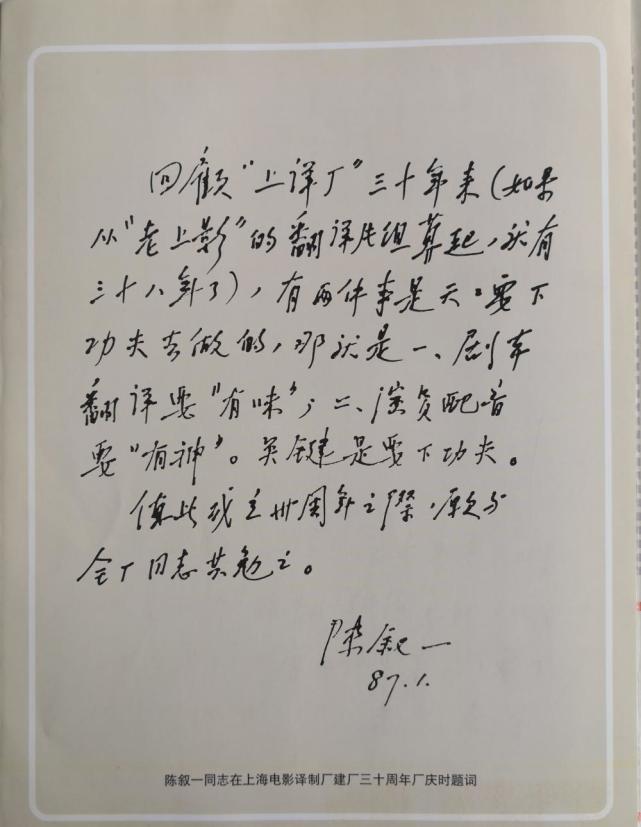 回顾“上译厂”三十年来(如果
从“老上影”的翻译片组算起,就有
三十八年了),有两件事是天天要下
功夫去做的,那就是一、剧本
翻译要“有味”;二、演员配音
要“有神”。关键是要下功夫。
值此成立卅周年之际,愿与
全厂同志共勉之。
陈叙一
87.1.
陈叙一同志在上海电影译制厂建厂三十周年厂庆时题词